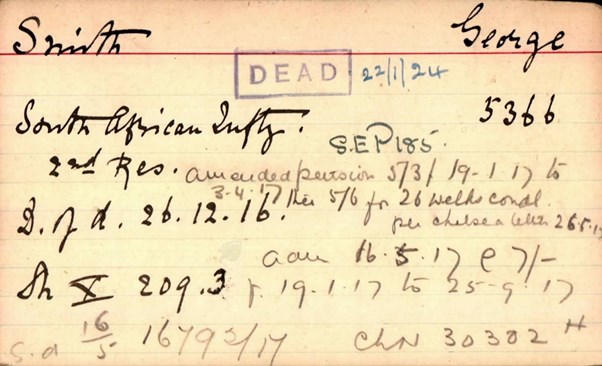 Smith George
DEAD 22/1/24
South African Infty. 5366
S.E.P 185.
2nd Res. amended pension 5/3 f 19-1-17 to
3-4-17 then 5/6 for 26 weeks condl.
D. of d. 26.12.16. per chelsea letter 26.5.17
adm 16.5.17 @ 7/-
Sh X 209.3 f. 19.1.17 to 25-9-17
S.a 16/5 16792/17 ChN 30302 H